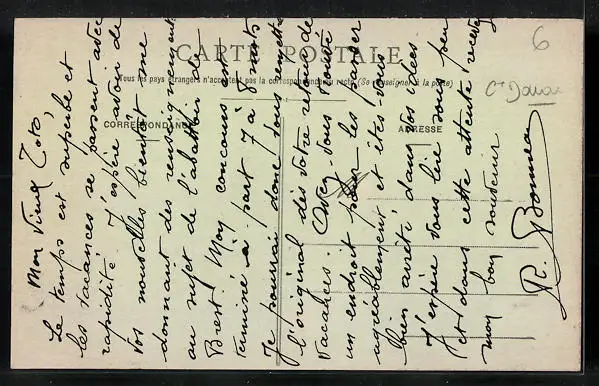 CARTE POSTALE
Tous les pays étrangers n'acceptent pas la correspondance au recto (Se renseigner à la poste)
CORRESPONDANCE
ADRESSE
6
Mon Vieux Toto,
Le temps est superbe et
les vacances se passent avec
rapidité. J'espère avoir de
vos nouvelles bientôt me
donnant des renseignements
au sujet de l'abattoir de
Brest. Mon concours est
terminé à part 7 à 8 mots
Je pourrai donc vous remettre
l'original dès votre retour de
vacances. Avez-vous trouvé
un endroit pour les passer
agréablement et êtes-vous
bien arrêté dans vos idées
J'espère vous lire sous peu
et dans cette attente recevez
mon bon souvenir
R. Bonneau